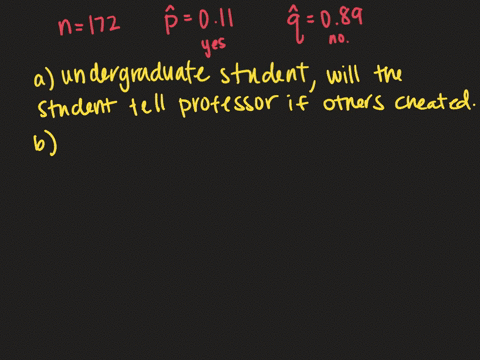 n=172 p̂=0.11 q̂=0.89
yes no.
a) undergraduate student, will the
student tell professor if others cheated.
b)